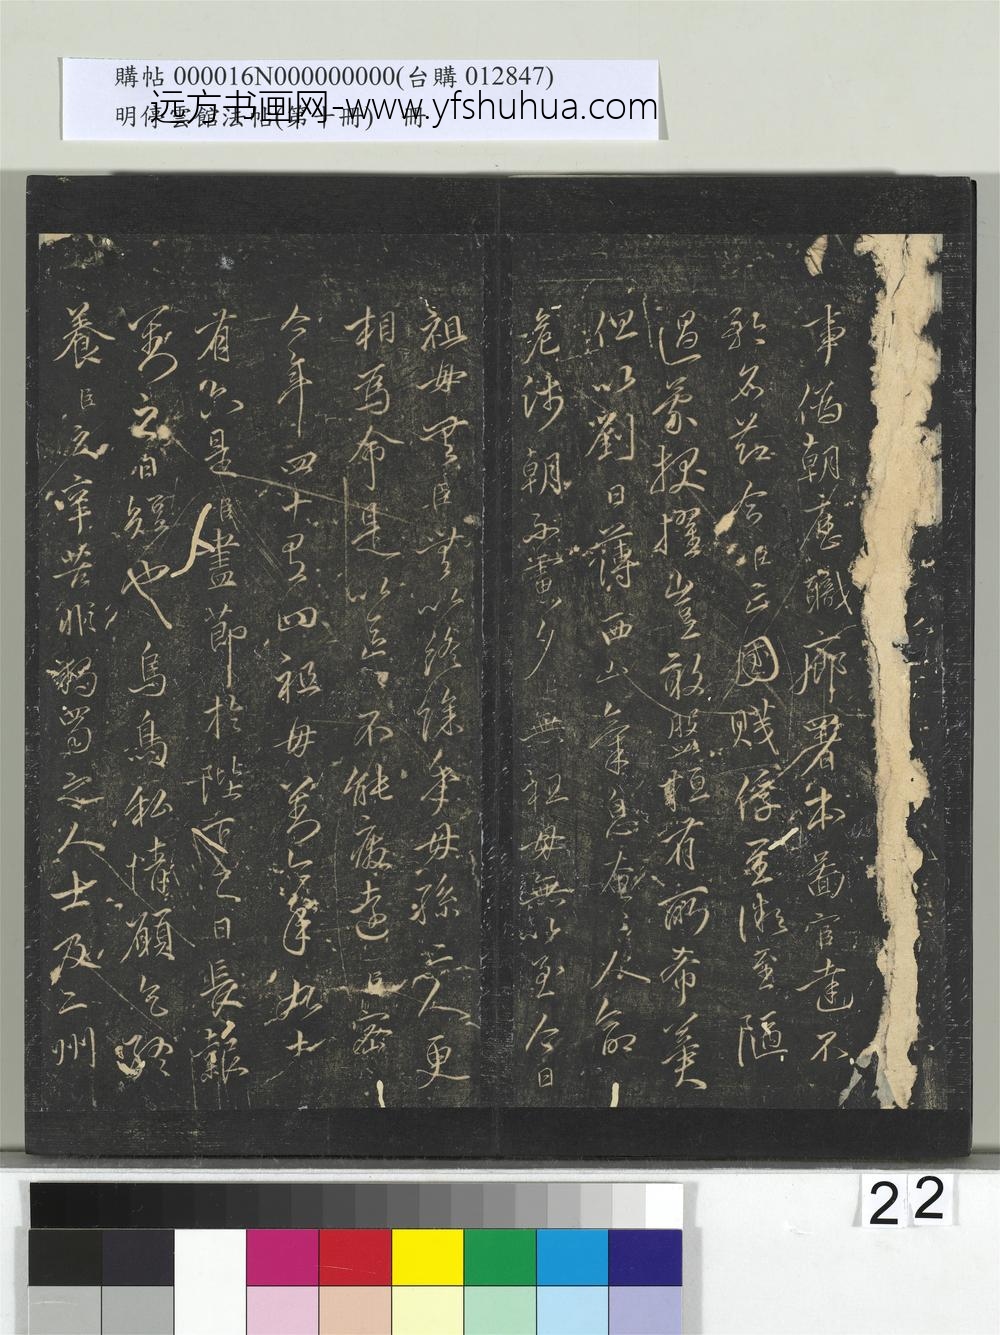 購帖 000016N000000000(台購 012847)
明停雲館法帖(第十冊) 冊
远方书画网-www.yfshuhua.com
事偽朝歷職廊署本啚官達不
矜名節今臣亡國賤俘至微至陋
過蒙拔擢豈敢盤桓有所希冀
但以劉日薄西山氣息奄々人命
危淺朝不慮夕臣無祖母無以至今日
祖母無臣無以終餘年母孫二人更
相為命是以區々不能廢遠臣密
今年四十有四祖母劉今年九十
有六是臣盡節於陛下之日長報
劉之日短也烏鳥私情願乞終
養臣之辛苦非獨蜀之人士及二州
22